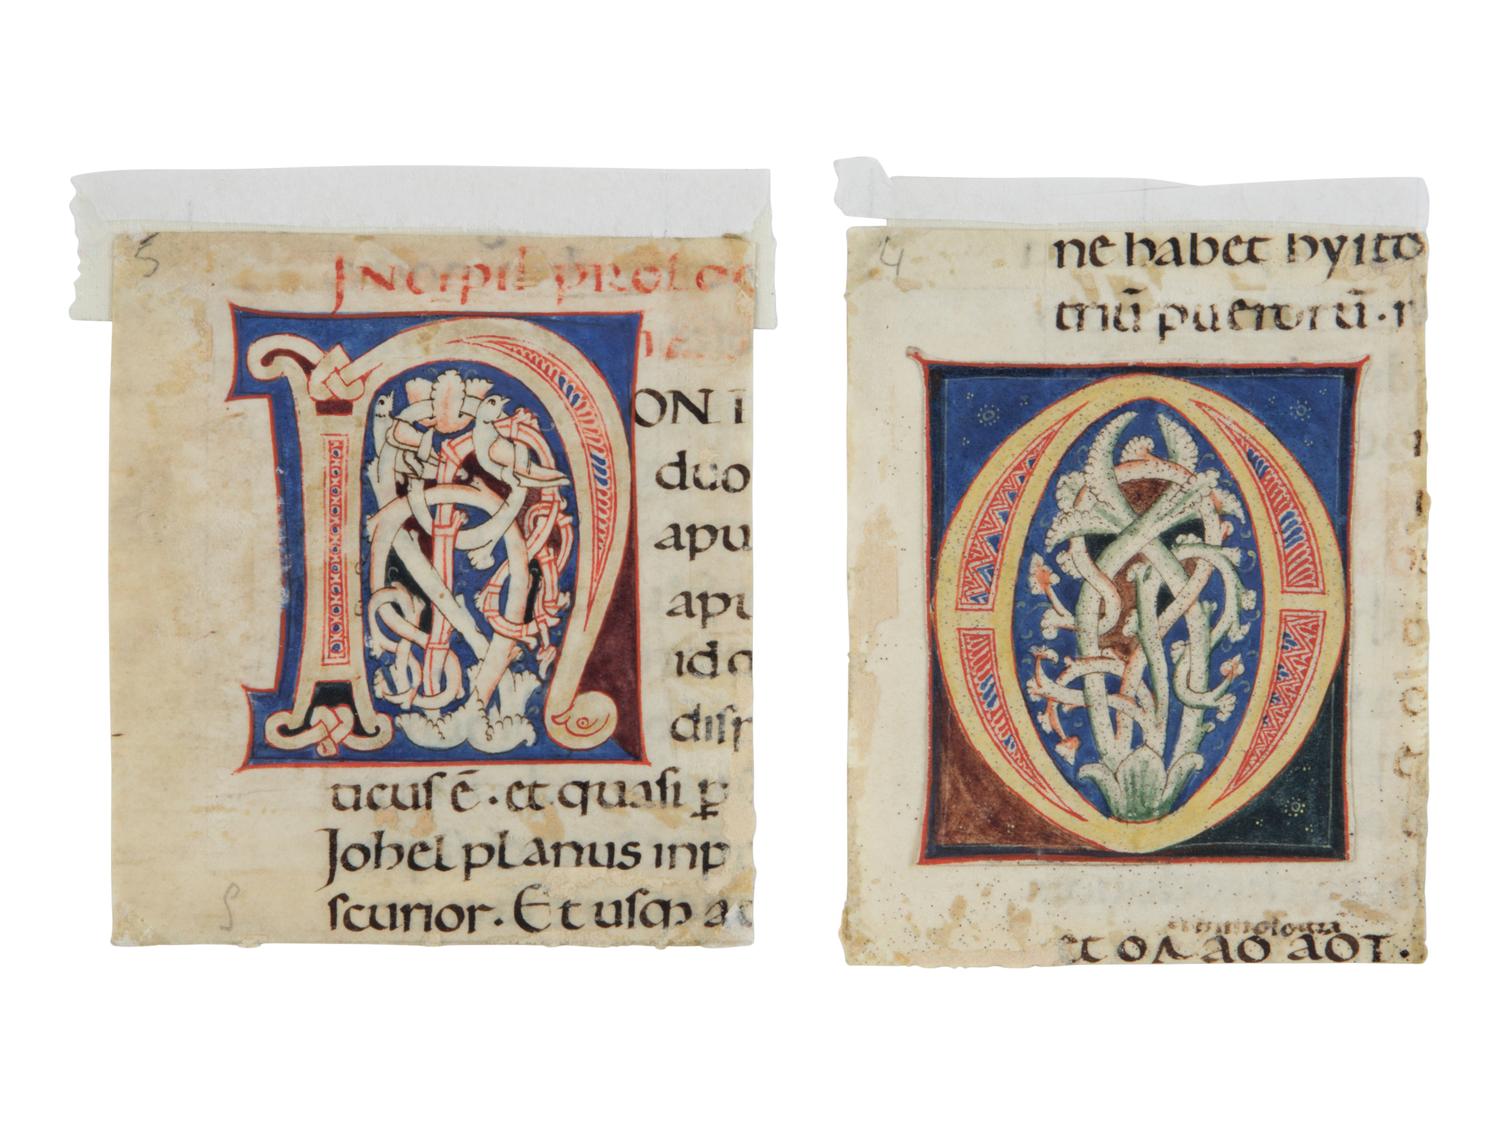 5
Incipit prolog
N
ON I
duo
apu
apu
id
disp
ticus ē. et quasi ꝑ
Johel planus inp
scurior. Et usq a
4
ne habet hysto
triū puerorū.
O
et ΟΛ ΑΟ ΑΟΤ.